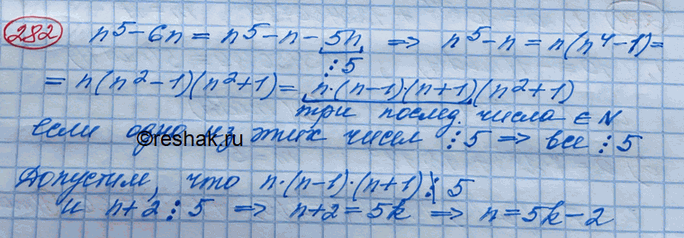 282 n⁵-6n = n⁵-n-5n ⇒ n⁵-n = n(n⁴-1)=
⋮5
= n(n²-1)(n²+1) = n·(n-1)(n+1)(n²+1)
три послед. числа ∈ N
если одно из этих чисел ⋮5 ⇒ все ⋮5
©reshak.ru
Допустим, что n·(n-1)·(n+1) ⋮̸ 5
и n+2 ⋮ 5 ⇒ n+2=5k ⇒ n=5k-2